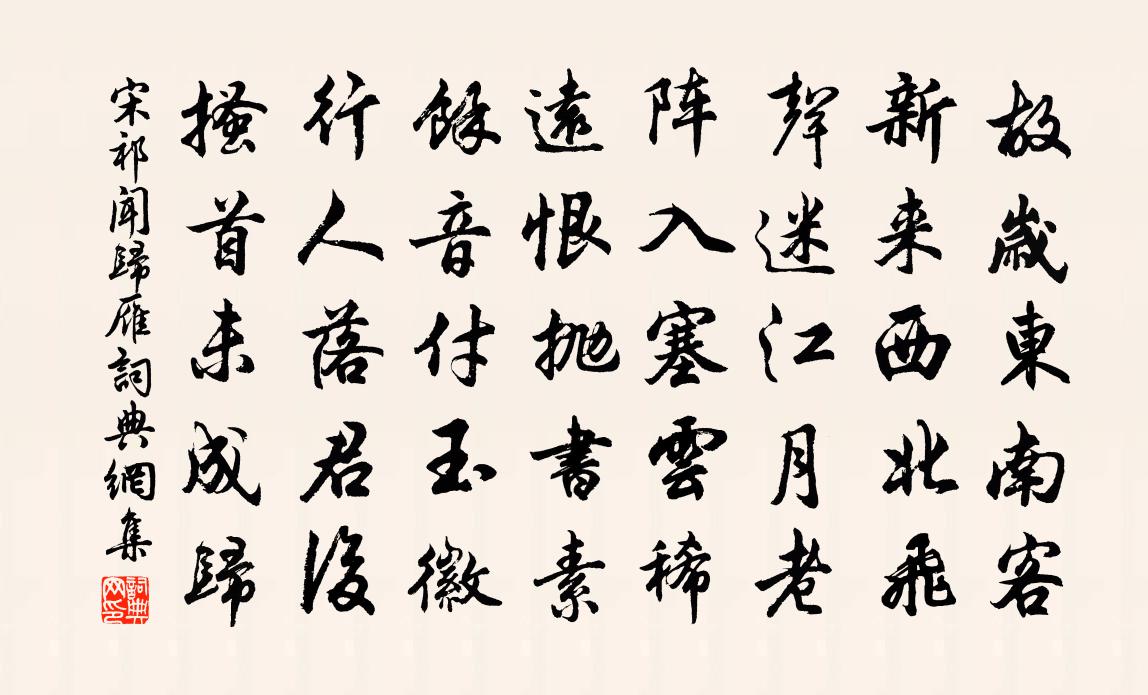 故歳東南客
新来西北飛
聲迷江月老
阵入塞雲稀
遠恨抛書素
餘音付玉徽
行人落君後
搔首未成歸
宋祁聞歸雁詞典網集
詞典网印